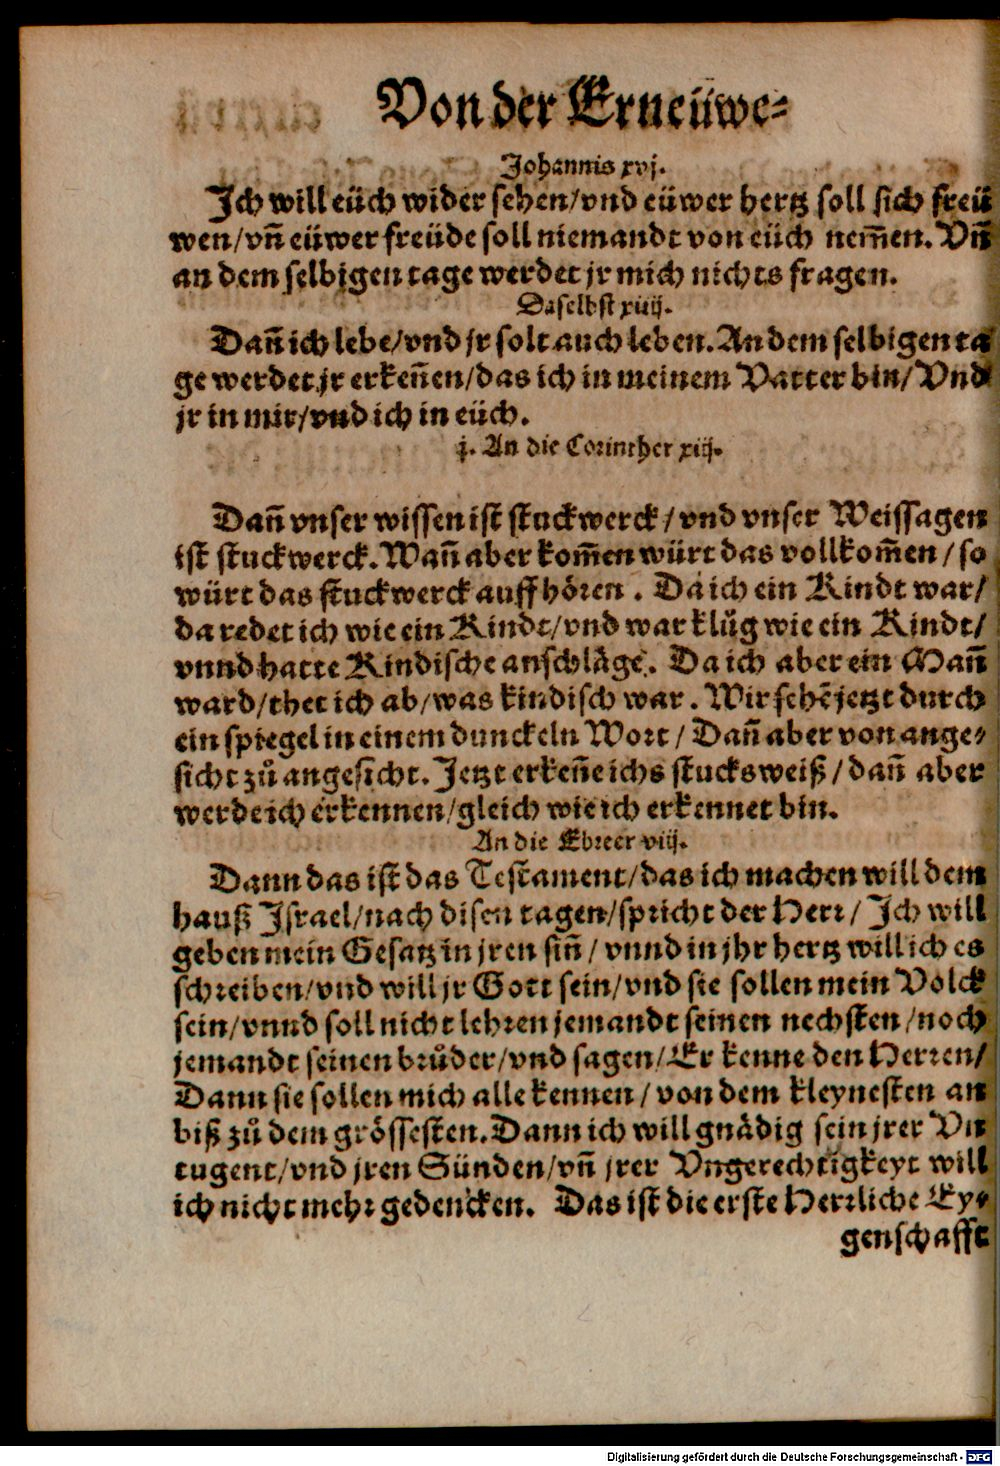 Von der Erneüwe⸗
Johannis xvj.
Jch will eüch wider sehen/vnd eüwer hertz soll sich freü
wen/vn̄ eüwer freüde soll niemandt von eüch nem̄en. Vn̄
an dem selbigen tage werdet jr mich nichts fragen.
Daselbst xiiij.
Dan̄ ich lebe/vnd jr solt auch leben. An dem selbigen ta
ge werdet jr erken̄en/das ich in meinem Vatter bin/Vnd
jr in mir/vnd ich in eüch.
j. An die Corinther xiij.
Dan̄ vnser wissen ist stuckwerck/vnd vnser Weissagen
ist stuckwerck. Wan̄ aber kom̄en würt das vollkom̄en/so
würt das stuckwerck auffhören. Da ich ein Kindt war/
da redet ich wie ein Kindt/vnd war klůg wie ein Kindt/
vnnd hatte Kindische anschläge. Da ich aber ein Man̄
ward/thet ich ab/was kindisch war. Wir sehē jetzt durch
ein spiegel in einem dunckeln Wort/Dan̄ aber von ange⸗
sicht zů angesicht. Jetzt erken̄e ichs stucksweiß/dan̄ aber
werde ich erkennen/gleich wie ich erkennet bin.
An die Ebreer viij.
Dann das ist das Testament/das ich machen will dem
hauß Jsrael/nach disen tagen/spricht der Herr/Jch will
geben mein Gesatz in jren sin̄/vnnd in jhr hertz will ich es
schreiben/vnd will jr Gott sein/vnd sie sollen mein Volck
sein/vnnd soll nicht lehren jemandt seinen nechsten/noch
jemandt seinen brůder/vnd sagen/Er kenne den Herren/
Dann sie sollen mich alle kennen/von dem kleynesten an
biß zů dem grössesten. Dann ich will gnädig sein jrer Vn
tugent/vnd jren Sünden/vn̄ jrer Vngerechtigkeyt will
ich nicht mehr gedencken. Das ist die erste Herrliche Ey⸗
genschafft
Digitalisierung gefördert durch die Deutsche Forschungsgemeinschaft - DFG